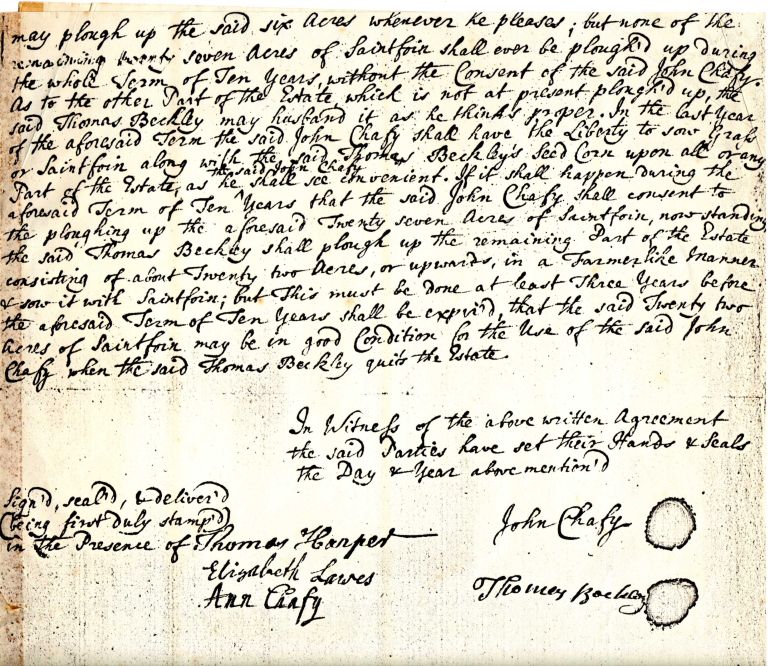 may plough up the said six Acres whenever he pleases; but none of the
remaining twenty seven Acres of Saintfoin shall ever be plough'd up during
the whole Term of Ten Years, without the Consent of the said John Chafy.
As to the other Part of the Estate, which is not at present plough'd up, the
said Thomas Beckley may husband it as he thinks proper. In the last Year
of the aforesaid Term the said John Chafy shall have the Liberty to sow Grass
or Saintfoin along with the said Thomas Beckley's Seed Corn upon all or any
the said John Chafy
Part of the Estate, as he shall see convenient. If it shall happen during the
aforesaid Term of Ten Years that the said John Chafy shall consent to
the ploughing up the aforesaid Twenty seven Acres of Saintfoin, now standing,
the said Thomas Beckley shall plough up the remaining Part of the Estate
consisting of about Twenty two Acres, or upwards, in a Farmerlike manner
& sow it with Saintfoin; but This must be done at least Three Years before
the aforesaid Term of Ten Years shall be expir'd, that the said Twenty two
Acres of Saintfoin may be in good Condition for the Use of the said John
Chafy when the said Thomas Beckley quits the Estate.
In Witness of the above written Agreement
the said Parties have set their Hands & Seals
the Day & Year above mention'd
Sign'd, seal'd, & deliver'd
(being first duly stamp'd)
in the Presence of Thomas Harper
Elizabeth Lawes
Ann Chafy
John Chafy
Thomas Beckley